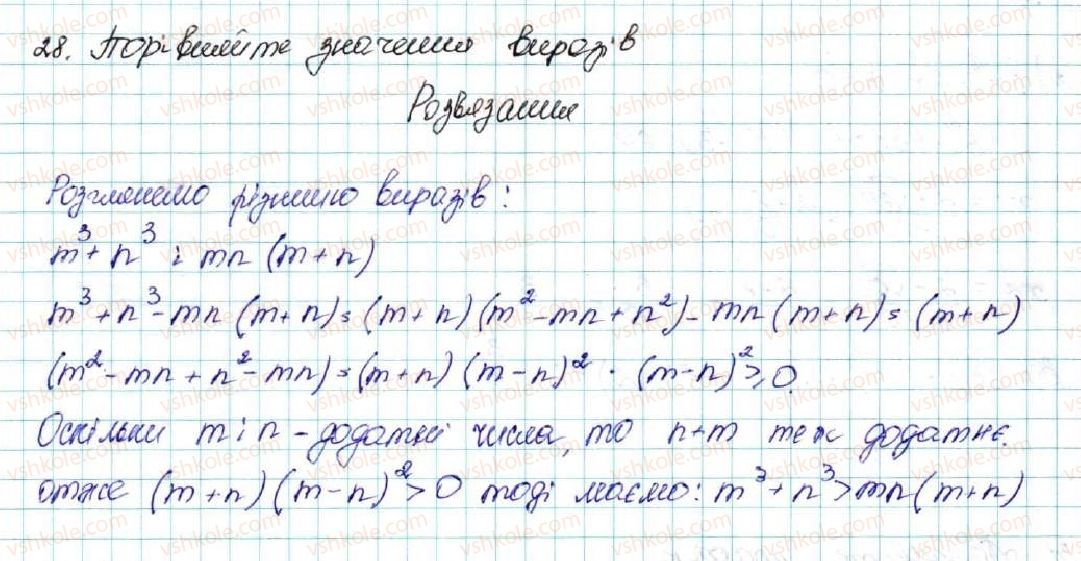 28. Порівняйте значення виразів
Розвязання
Розглянемо різницю виразів:
m³ + n³ і mn (m + n)
m³ + n³ - mn (m + n) = (m + n) (m² - mn + n²) - mn (m + n) = (m + n)
(m² - mn + n² - mn) = (m + n) (m - n)² · (m - n)² ≥ 0.
Оскільки m і n - додатні числа, то n + m теж додатнє.
отже (m + n) (m - n)² > 0 тоді маємо: m³ + n³ > mn (m + n)
vshkole.com